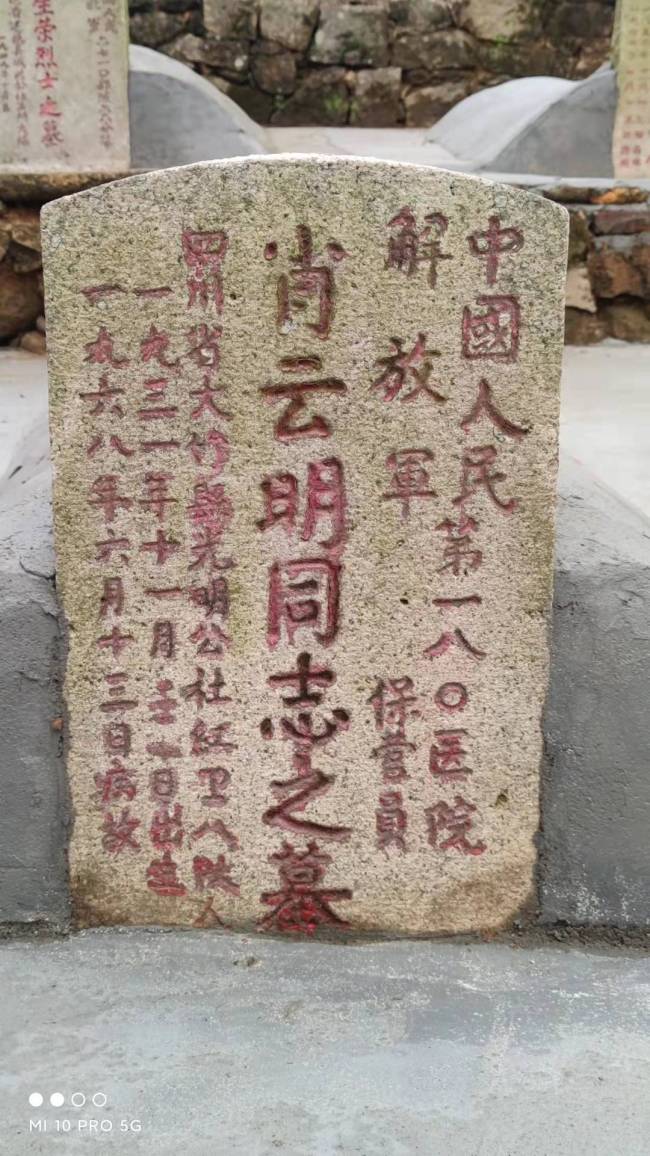 中國人民
解放軍
第一八〇医院
保营員
肖云明同志之墓
四川省大竹縣光明公社紅卫八队人
一九三一年十一月日出生
一九六八年六月十三日病故
生荣烈士之墓
MI 10 PRO 5G